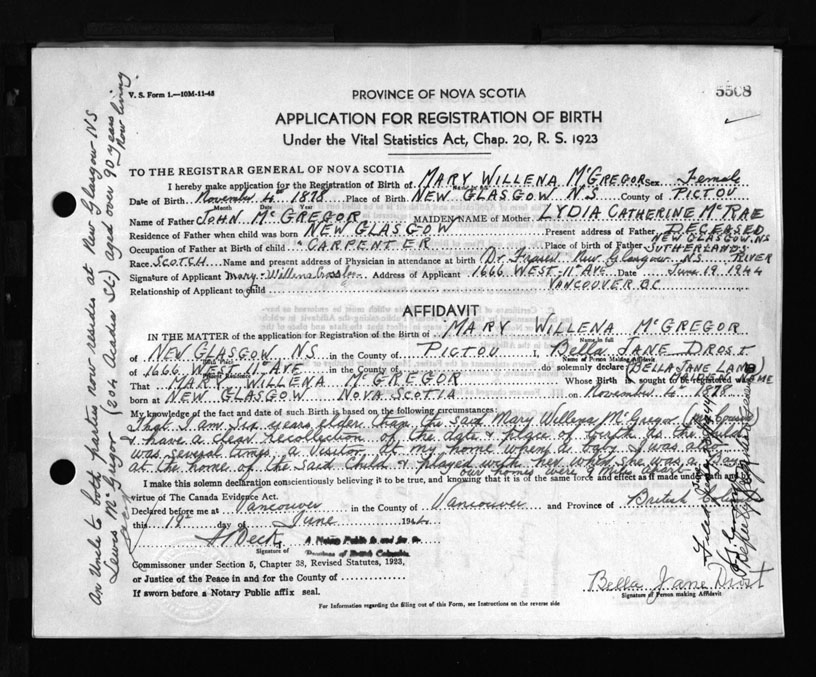 V. S. Form 1.—10M-11-43
PROVINCE OF NOVA SCOTIA
5508
APPLICATION FOR REGISTRATION OF BIRTH
Under the Vital Statistics Act, Chap. 20, R. S. 1923
TO THE REGISTRAR GENERAL OF NOVA SCOTIA
I hereby make application for the Registration of Birth of MARY WILLENA McGREGOR Sex Female
Name in full
Date of Birth November 4th 1878 Place of Birth NEW GLASGOW N S County of PICTOU
Month Date Year
Name of Father JOHN McGREGOR MAIDEN NAME of Mother LYDIA CATHERINE McRAE
Residence of Father when child was born NEW GLASGOW Present address of Father DECEASED
NEW GLASGOW, NS
Occupation of Father at Birth of child CARPENTER Place of birth of Father SUTHERLANDS
Race SCOTCH Name and present address of Physician in attendance at birth (Dr. Fraser New Glasgow N S RIVER
Signature of Applicant Mary Willena Address of Applicant 1666 WEST 11th AVE Date June 19 1944
Relationship of Applicant to child VANCOUVER BC
AFFIDAVIT
IN THE MATTER of the application for Registration of the Birth of MARY WILLENA McGREGOR
Name in full
of NEW GLASGOW NS in the County of PICTOU I, Bella JANE DROST
Name of Person Making Affidavit
of 1666 WEST 11th AVE in the County of do solemnly declare (BELLA JANE LAMB
That MARY WILLENA McGREGOR Whose Birth is sought to be registered was
born at NEW GLASGOW NOVA SCOTIA on November 4th 1878
My knowledge of the fact and date of such Birth is based on the following circumstances:
That I am six years older than the said Mary Willena McGregor (my cousin)
& have a clear recollection of the date & place of birth as the child
was several times a visitor at my home when a baby & I was also
at the home of the said child & played with her when she was a Baby
our homes were 6 miles apart
I make this solemn declaration conscientiously believing it to be true, and knowing that it is of the same force and effect as if made under oath by
virtue of The Canada Evidence Act.
Declared before me at Vancouver in the County of Vancouver and Province of British
this 19th day of June 1944
Signature of
A Notary Public in and for the
Province of British Columbia.
Commissioner under Section 5, Chapter 38, Revised Statutes, 1923,
or Justice of the Peace in and for the County of
If sworn before a Notary Public affix seal.
Bella Jane Drost
Signature of Person making Affidavit
For Information regarding the filling out of this Form, see Instructions on the reverse side
An Uncle to both parties now resides at New Glasgow NS
Lewis McGregor (204 Acadia St) aged over 90 years
now living